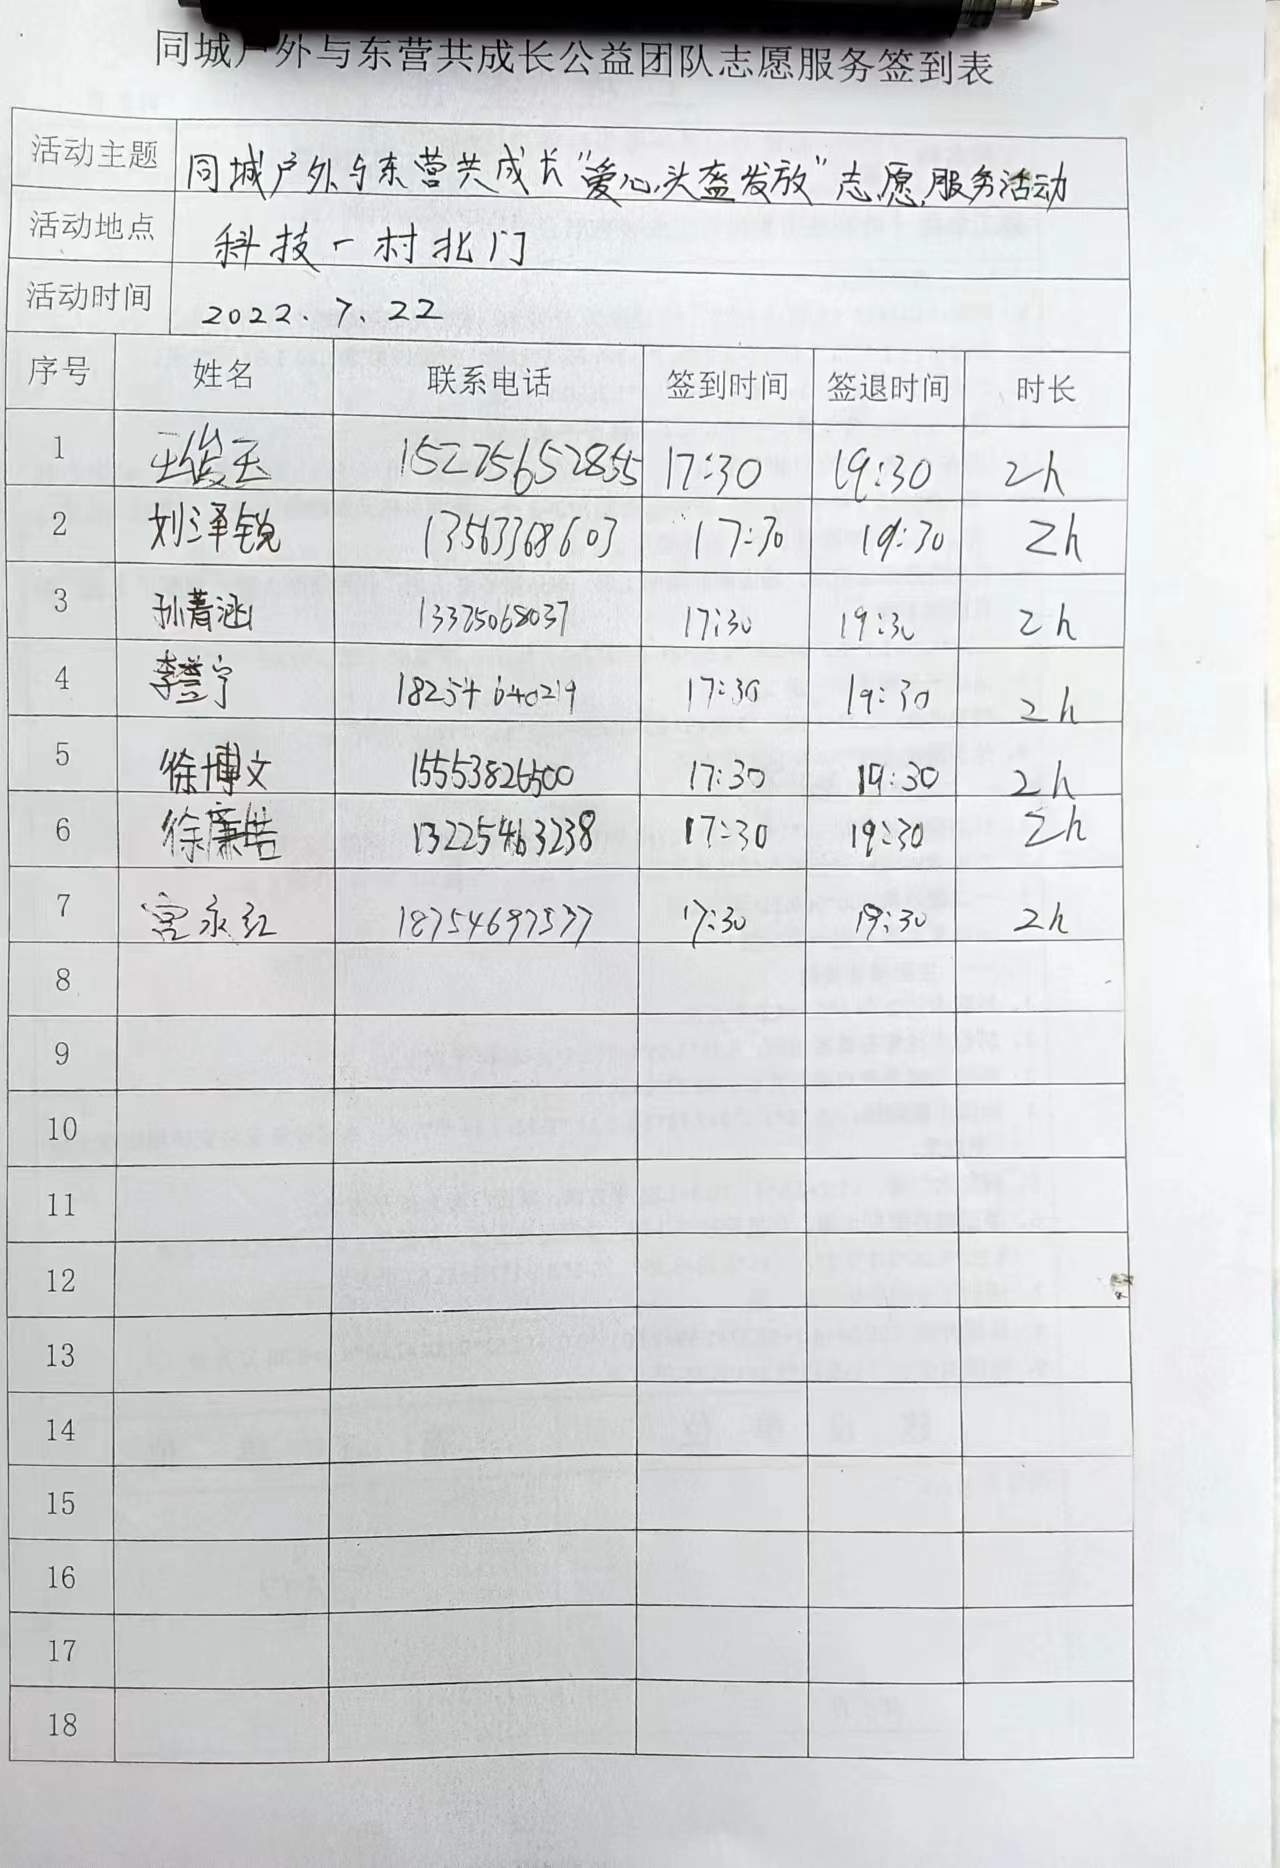 同城户外与东营共成长公益团队志愿服务签到表
活动主题 同城户外与东营共成长“爱心头盔发放”志愿服务活动
活动地点 科技一村北门
活动时间 2022.7.22
序号 姓名 联系电话 签到时间 签退时间 时长
1 王俊玉 15275652855 17:30 19:30 2h
2 刘泽锐 13563368603 17:30 19:30 2h
3 孙菁涵 13325068037 17:30 19:30 2h
4 李誉宁 18254640219 17:30 19:30 2h
5 徐博文 15553826500 17:30 19:30 2h
6 徐廉皓 13225463238 17:30 19:30 2h
7 宫永红 18754697537 17:30 19:30 2h
8
9
10
11
12
13
14
15
16
17
18